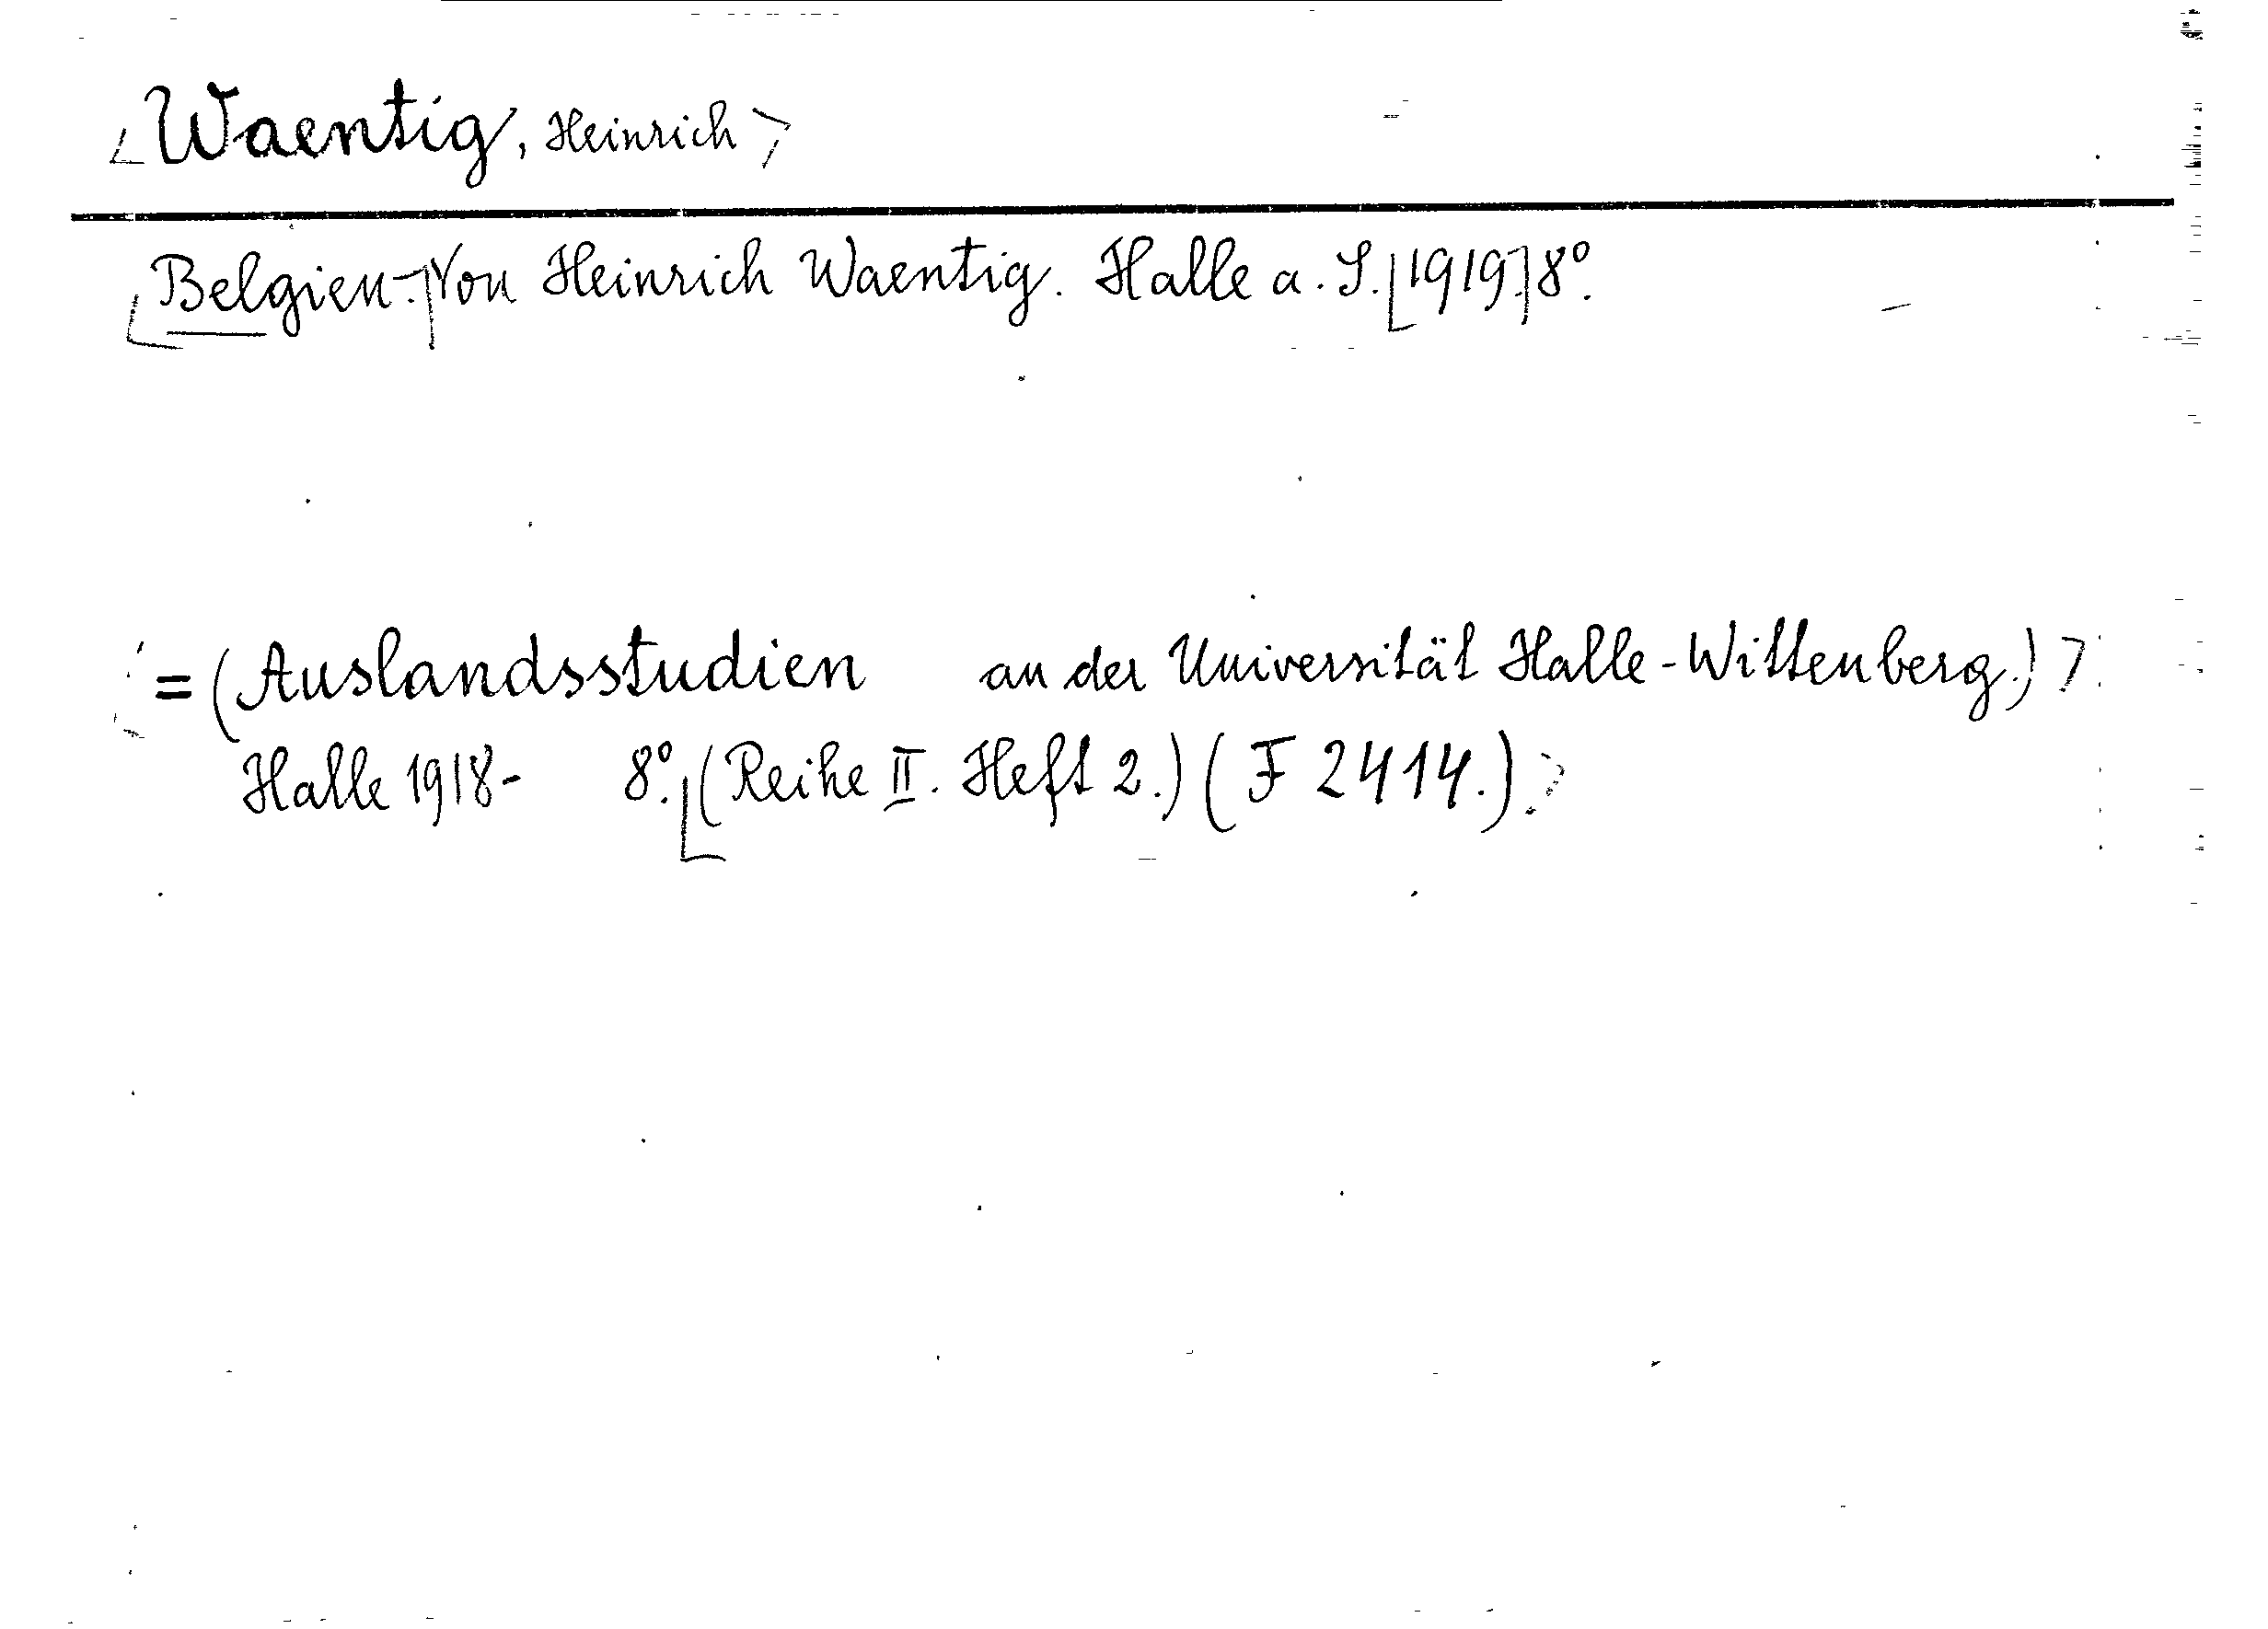 Waentig, Heinrich
Belgien. Von Heinrich Waentig. Halle a. S. [1919.] 8°.
= (Auslandsstudien an der Universität Halle-Wittenberg.)
Halle 1918- 8°. (Reihe II. Heft 2.) (F 2414.)